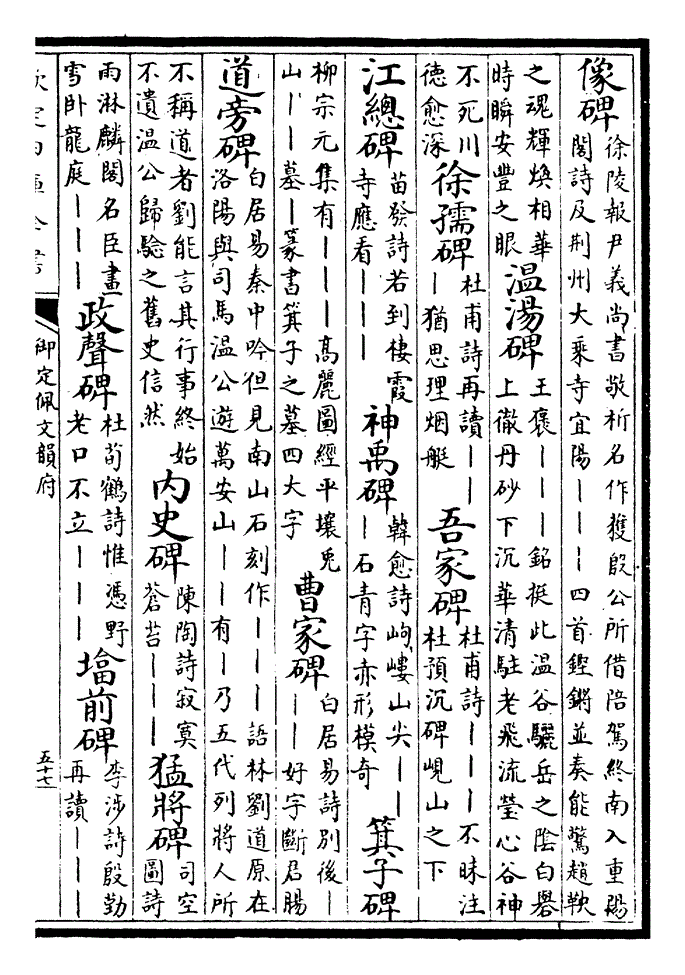 像碑徐陵報尹義尚書敬析名作獲殷公所借陪駕終南入重陽閣詩及荆州大乘寺宜陽丨丨丨四首鏗鏘並奏能驚趙鞅
之魂輝煥相華時瞬安豐之眼温湯碑王褒丨丨丨銘挺此温谷驪岳之陰白礬上徹丹砂下沉華清駐老飛流瑩心谷神
不死川德愈深徐孺碑杜甫詩再讀丨丨丨猶思理烟艇吾家碑杜甫詩丨丨丨不昧注杜預沉碑峴山之下
江總碑苗發詩若到棲霞寺應看丨丨丨神禹碑韓愈詩岣嶁山尖丨丨丨石青字赤形模奇箕子碑
柳宗元集有丨丨丨丨高麗圖經平壤兎山丨丨墓丨篆書箕子之墓四大字曹家碑白居易詩別後丨丨丨好字斷君腸
道旁碑白居易秦中吟但見南山石刻作丨丨丨語林劉道原在洛陽與司馬温公遊萬安山丨丨有丨乃五代列將人所
不稱道者劉能言其行事終始不遺温公歸驗之舊史信然内史碑陳陶詩寂寞蒼苔丨丨丨猛將碑司空圖詩
雨淋麟閣名臣畫雪卧龍庭丨丨丨政聲碑杜荀鶴詩惟憑野老口不立丨丨丨墖前碑李涉詩殷勤再讀丨丨丨
欽定四庫全書
御定佩文韻府
五十七